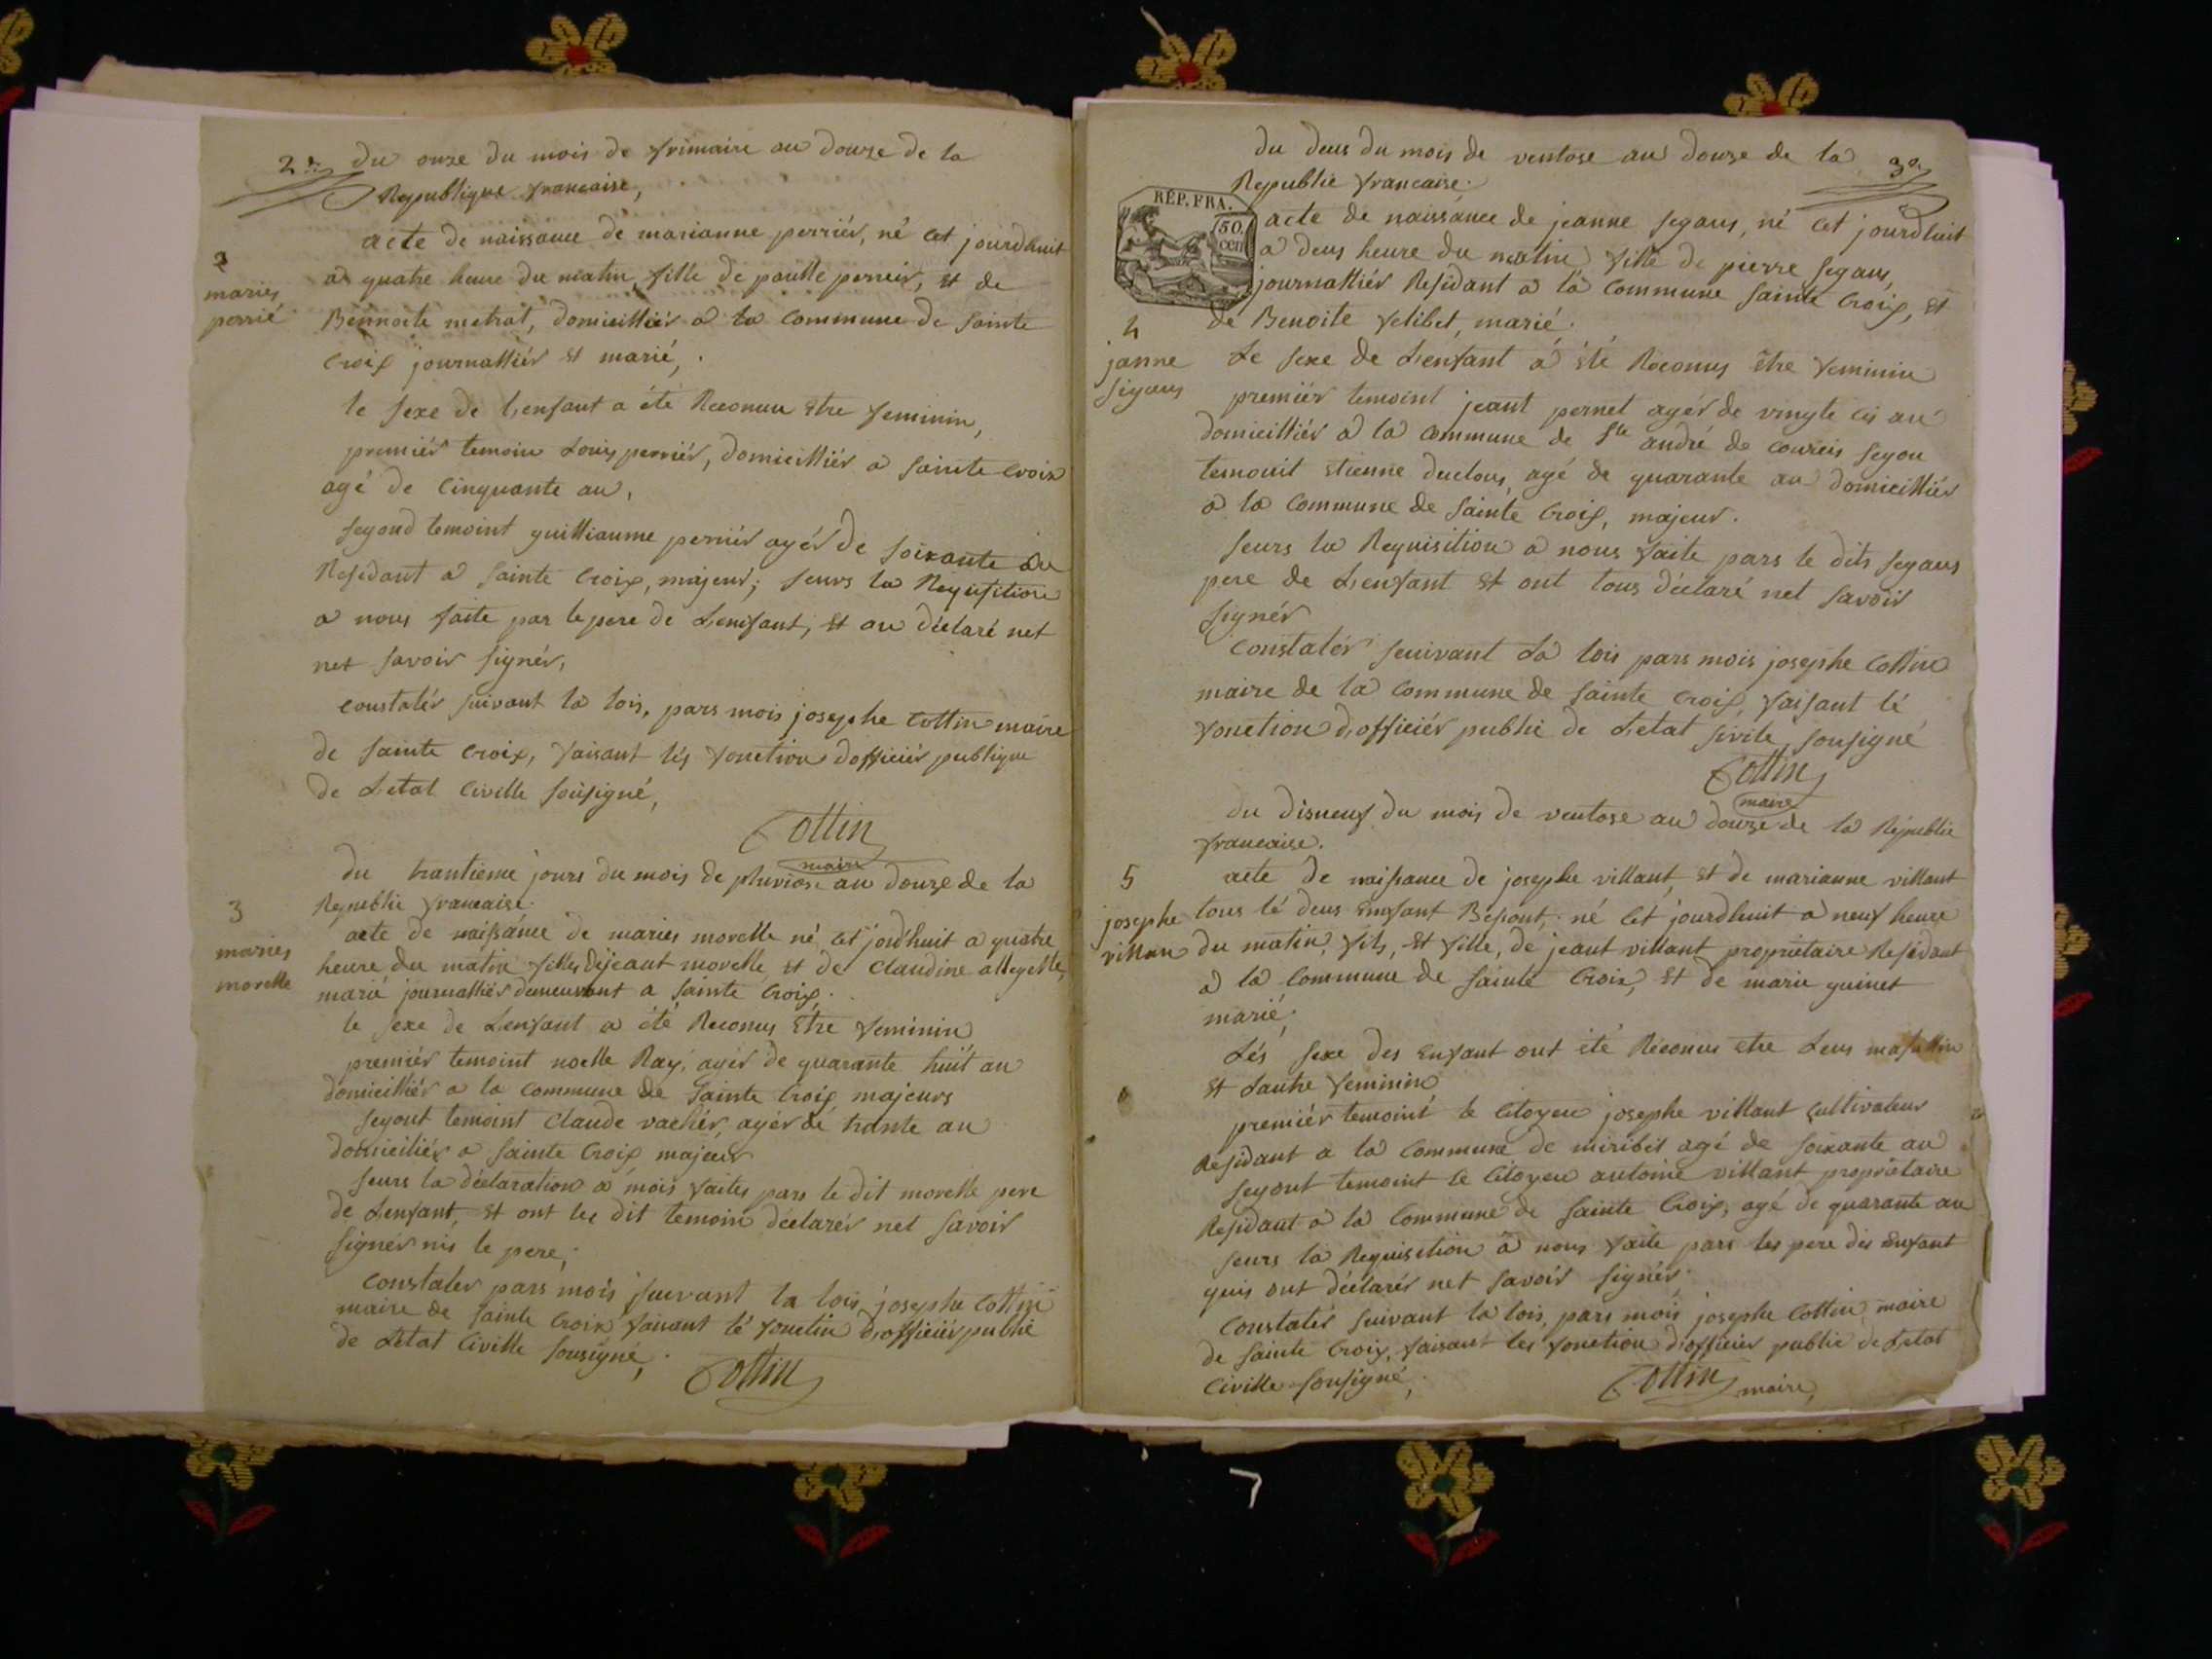 2e
du onze du mois de frimaire an douze de la
Republique francaise,
2
maries
perrié
acte de naissance de marianne perriér, né cet jourdhuit
a quatre heure du matin, fille de paulle perrier, et de
Bennoite metrat, domicilliér a la commune de sainte
croix journalliér et marié,
le sexe de lenfant a été Reconnu etre feminin,
premiér temoin Louis perriér, domicilliér a sainte croix
agé de cinquante an,
segond temoint guilliaume perriér agér de soixante an
Residant a sainte croix, majeur; seurs la Requisition
a nous faite par le pere de Lenfant, et on déclaré net
net savoir signér,
constatér suivant la lois, pars mois josephe Cottin maire
de sainte croix, faisant lés fonction dofficiér publique
de Letat civille sousigné,
Cottin
maire
du trantieme jours du mois de pluviose an douze de la
Republie francaise.
3
maries
morelle
acte de naissance de maries morelle né cet jordhuit a quatre
heure du matin filles dejeant morelle et de Claudine
marié journalliér demeurant a sainte croix,
le sexe de Lenfant a été Reconus etre feminin
premiér temoint noelle Ray, agér de quarante huit an
domicilliér a la commune de Sainte Croix majeurs
segont temoint Claude vachér, agér de trante an
domiciliér a sainte Croix majeur
seurs la déclaration a mois faites pars le dit morelle pere
de Lenfant, et ont les dit temoin déclarér net savoir
signér nis le pere,
constater pars mois suivant la lois josephe Cottin
maire de sainte Croix faisant lé fonction dofficiér publie
de Létat civille sousigné,
Cottin
3e
du deus du mois de ventose an douze de la
Republie francaise.
RÉP. FRA.
50.
cen
acte de naissance de jeanne segaus, né cet jourdhuit
a deus heure du matin fille de pierre segaus,
journalliér Residant a la commune sainte Croix, et
de Benoite felibet, marié.
4
janne
sigaus
Le sexe de Lenfant a été Reconus etre feminin
premiér temoint jeant pernet agér de vingte an
domicilliér a la commune de Ste andré de segon
temouit etienne duclous, agé de quarante an domicilliér
a la commune de sainte Croix, majeur.
seurs la Requisition a nous faite pars le dits segaus
pere de Lenfant et ont tous déclaré net savoir
signér
constatér seuivant La lois pars mois josephe Cottin
maire de la commune de sainte croix, faisant lé
fonction dofficiér publie de Letat sivile sousigné
Cottin
maire
du disneuf du mois de ventose an douze de la Républie
francaise.
5
josephe
villan
acte de naissance de josephe villant, et de marianne villant
tous lé deus enfant Besont, né cet jourdhuit a neuf heure
du matin, fils, et fille, de jeant villant propriétaire Residant
a la commune de sainte Croix, et de marie guinet
marié,
Lés sexe des enfant ont été Réconus etre Leus masullin
et Lautre feminin
premiér temoint le citoyen josephe villant cultivateur
Residant a la commune de miribel agé de soixante an
segont temoint le citoyen antoine villant propriétaire
Residant a la commune de sainte Croix, agé de quarante an
seurs la Requisition a nous faite pars les pere des enfant
quis ont déclarér net savoir signér,
constatér suivant la lois, pars mois josephe Cottin maire
de sainte Croix, faisant les fonction dofficiér publie de Letat
civille sousigné,
Cottin maire,